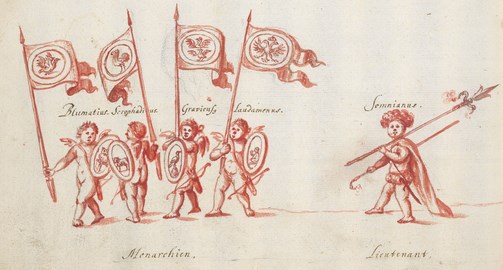 Blumatius. Scephadius Gravieuß. Laudamenus. Somnianus.
Monarchien. Lieutenant.